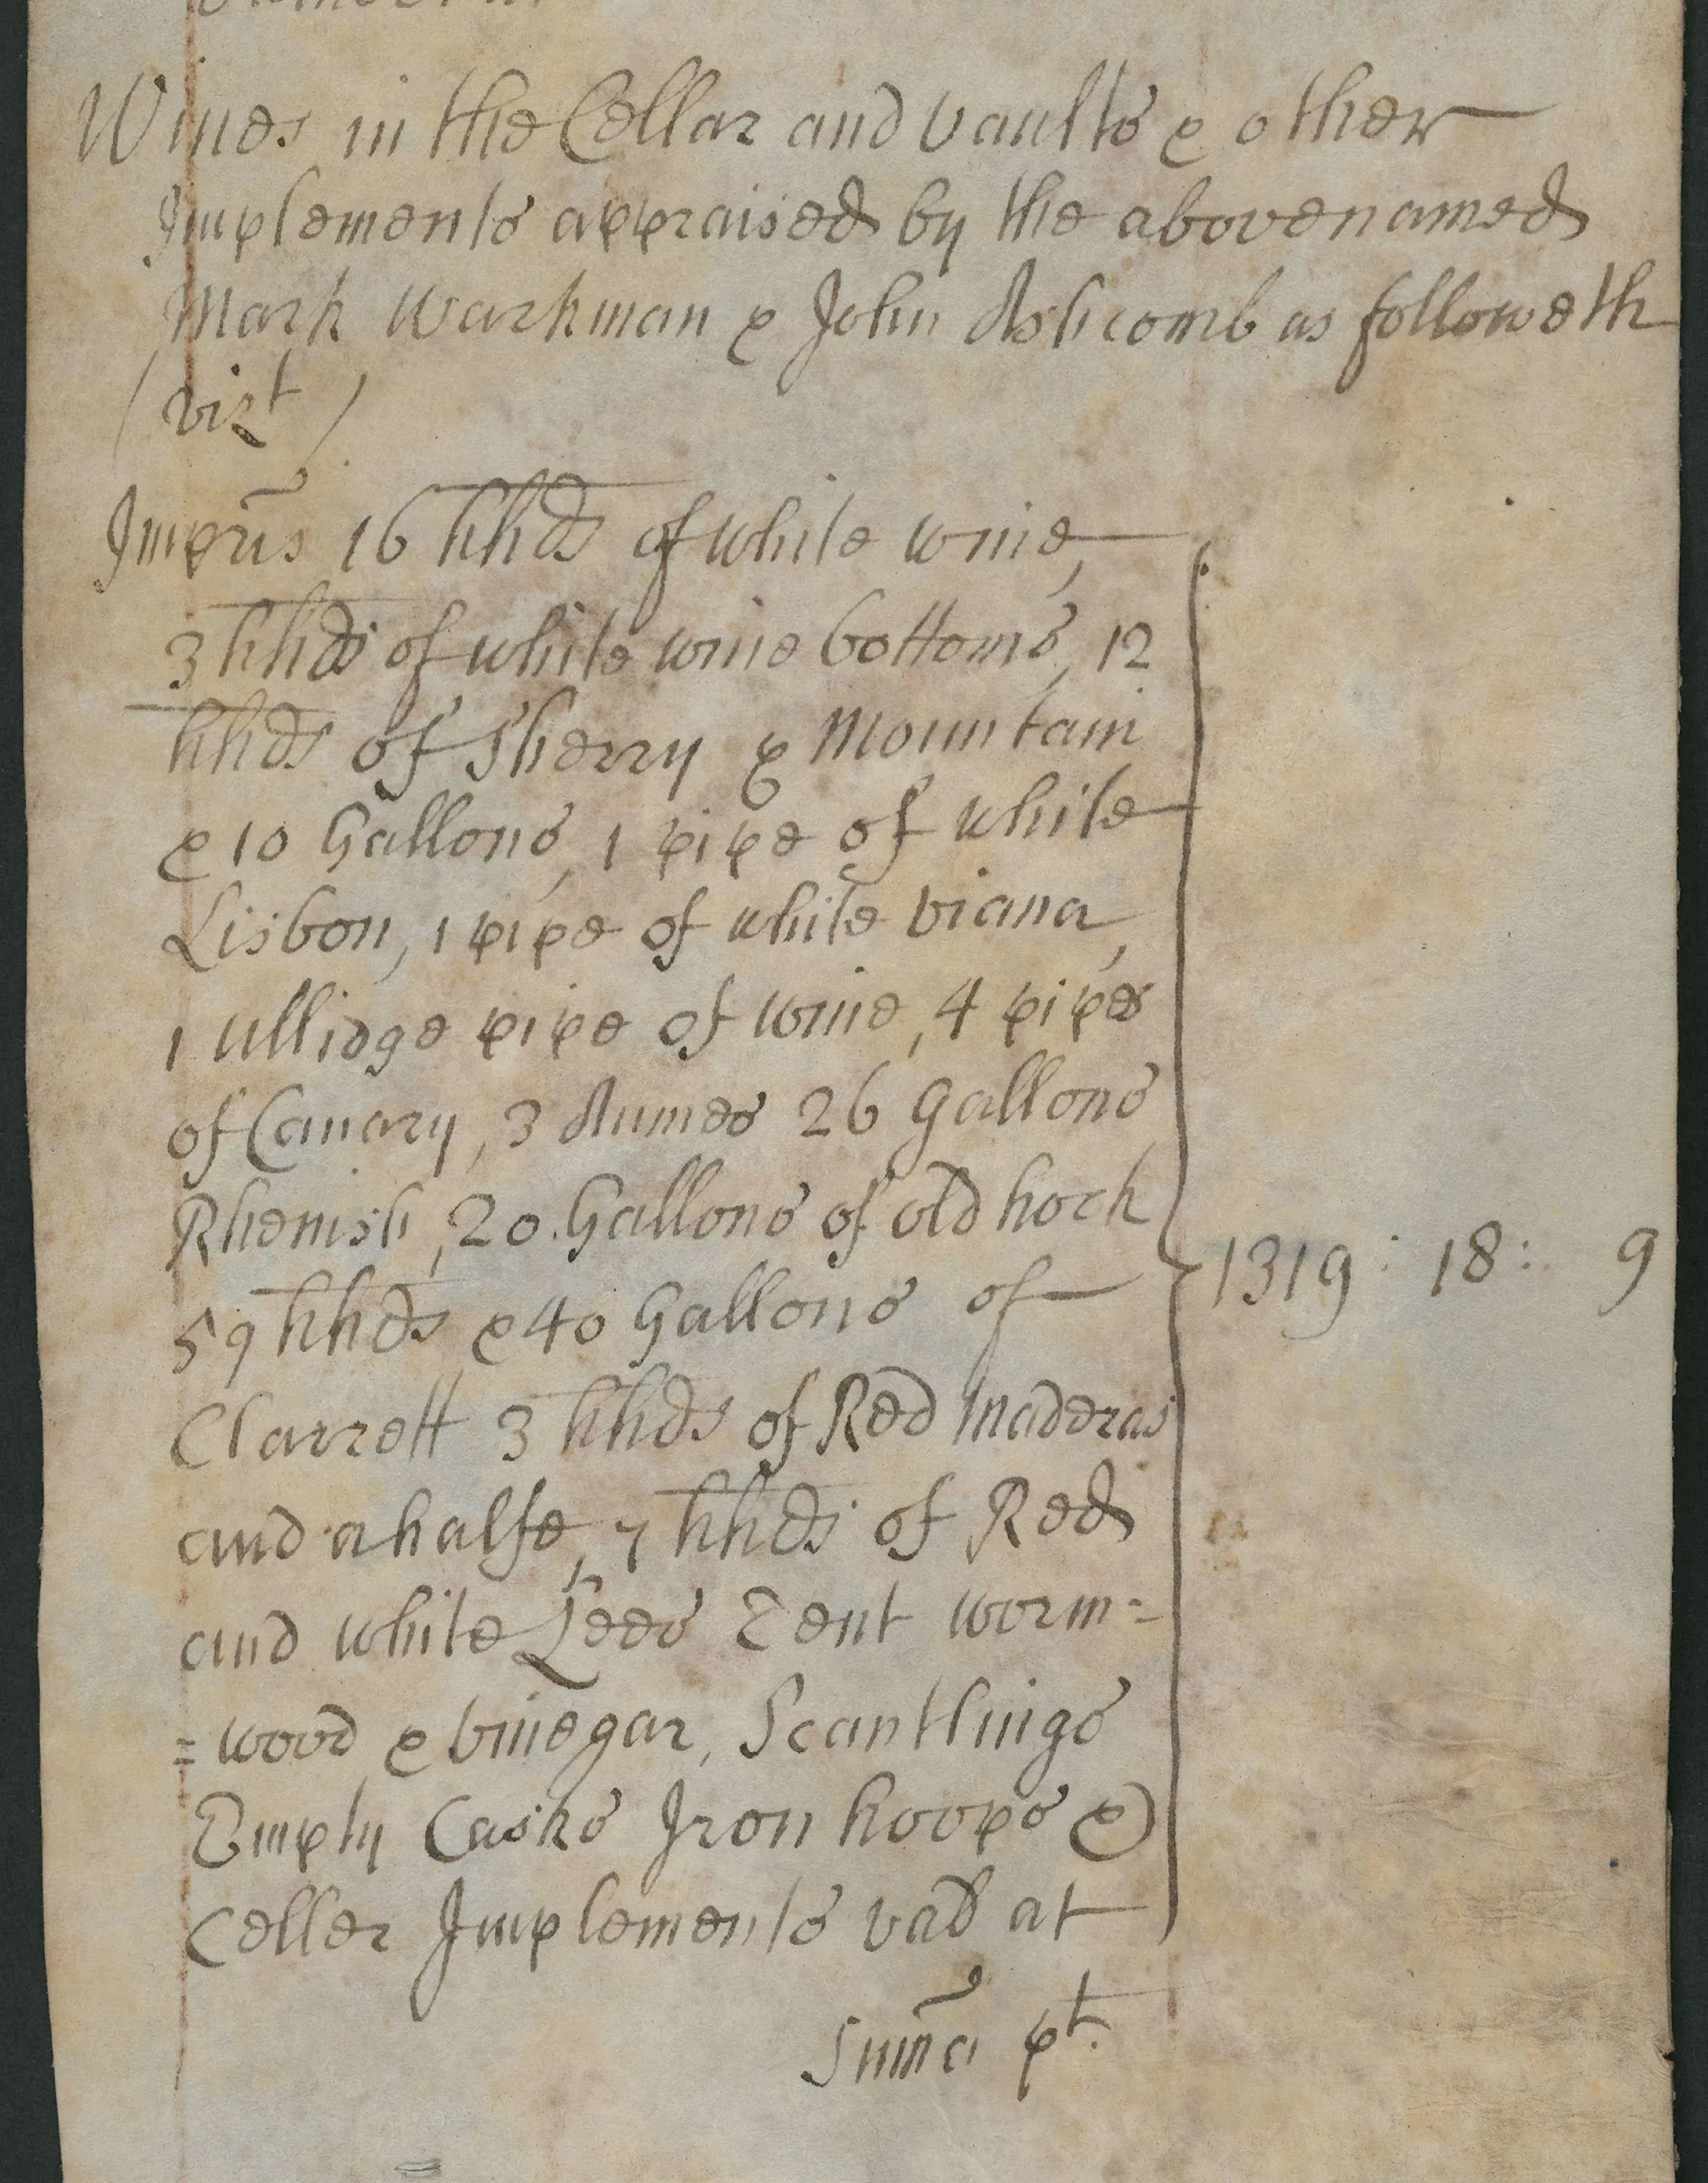 Wines in the Cellar and vaults & other
Implements appraised by the abovenamed
Mark Warkman & John Ashcomb as followeth
(vizt)
Imprīs 16 hhds of white wine,
3 hhds of white wine bottoms, 12
hhds of Sherry & Mountain
& 10 Gallons, 1 pipe of white
Lisbon, 1 pipe of white viana,
1 ullidge pipe of wine, 4 pipes
of Canary, 3 Aumes 26 Gallons
Rhenish, 20 Gallons of old hock
59 hhds & 40 Gallons of
Clarrett 3 hhds of Red Maderas
and a halfe, 7 hhds of Red
and white Lees Tent worm=
=wood & vinegar, Scantlings
Empty Casks Iron hoops &
Celler Implements vad at
1319 : 18 : 9
Sum̄a pt.